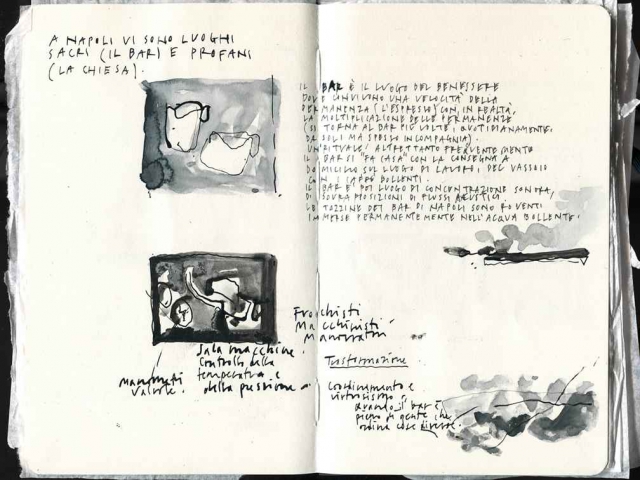 A NAPOLI VI SONO LUOGHI
SACRI (IL BAR) E PROFANI
(LA CHIESA).
IL BAR È IL LUOGO DEL BENESSERE
DOVE CONVIVONO UNA VELOCITÀ DELLA
PERMANENZA (L'ESPRESSO) CON, IN REALTÀ,
LA MOLTIPLICAZIONE DELLE PERMANENZE
(SI TORNA AL BAR PIÙ VOLTE, QUOTIDIANAMENTE,
DA SOLI MA SPESSO IN COMPAGNIA).
UN'RITUALE/ ALTRETTANTO FREQUENTEMENTE
IL BAR SI "FA CASA" CON LA CONSEGNA A
DOMICILIO SUL LUOGO DI LAVORO, DEL VASSOIO
CON I CAFFÈ BOLLENTI.
IL BAR È POI LUOGO DI CONCENTRAZIONE SONORA,
DI SOVRAPPOSIZIONI DI FLUSSI ACUSTICI.
LE TAZZINE DEI BAR DI NAPOLI SONO ROVENTI
IMMERSE PERMANENTEMENTE NELL'ACQUA BOLLENTE.
Fuochisti
Macchinisti
Manovratori
Sala macchine.
Controllo della
temperatura e
della pressione
Manometri
valvole.
Trasformazione
Coordinamento e
virtuosismo,
quando il bar è
pieno di gente che
ordina cose diverse.